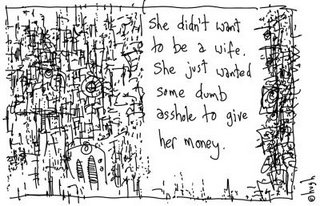 She didn't want
to be a wife.
She just wanted
some dumb
asshole to give
her money.
©hugh